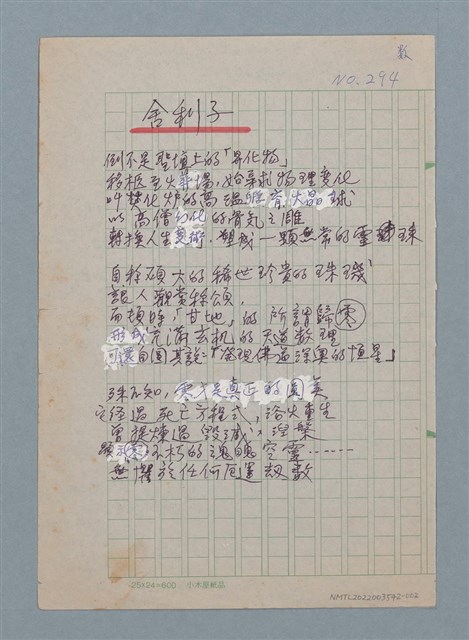 數
NO.294
舍利子
倒不是聖壇上的「昇化物」
移柩至火葬場,始尋求物理變化
叫焚化爐的高溫 大晶球
以高僧幻化的骨氣之雕
轉換人生美術.塑成一顆無常的靈 珠
自稱碩大的稀世珍貴的珠璣
讓人觀賞稱頌,
而頓時「甘地」的所謂歸零
形成充滿玄机的天道數理
可還自圓其說:「發現佛道深奧的恒星」
殊不知,零才是真正的圓美
它經過死亡方程式,浴火重生
曾提煉過"毀滅"、涅槃
不朽的魂魄空靈……
無懼於任何厄運劫數
25×24=600 小木屋紙品
NMTL2022003542-002